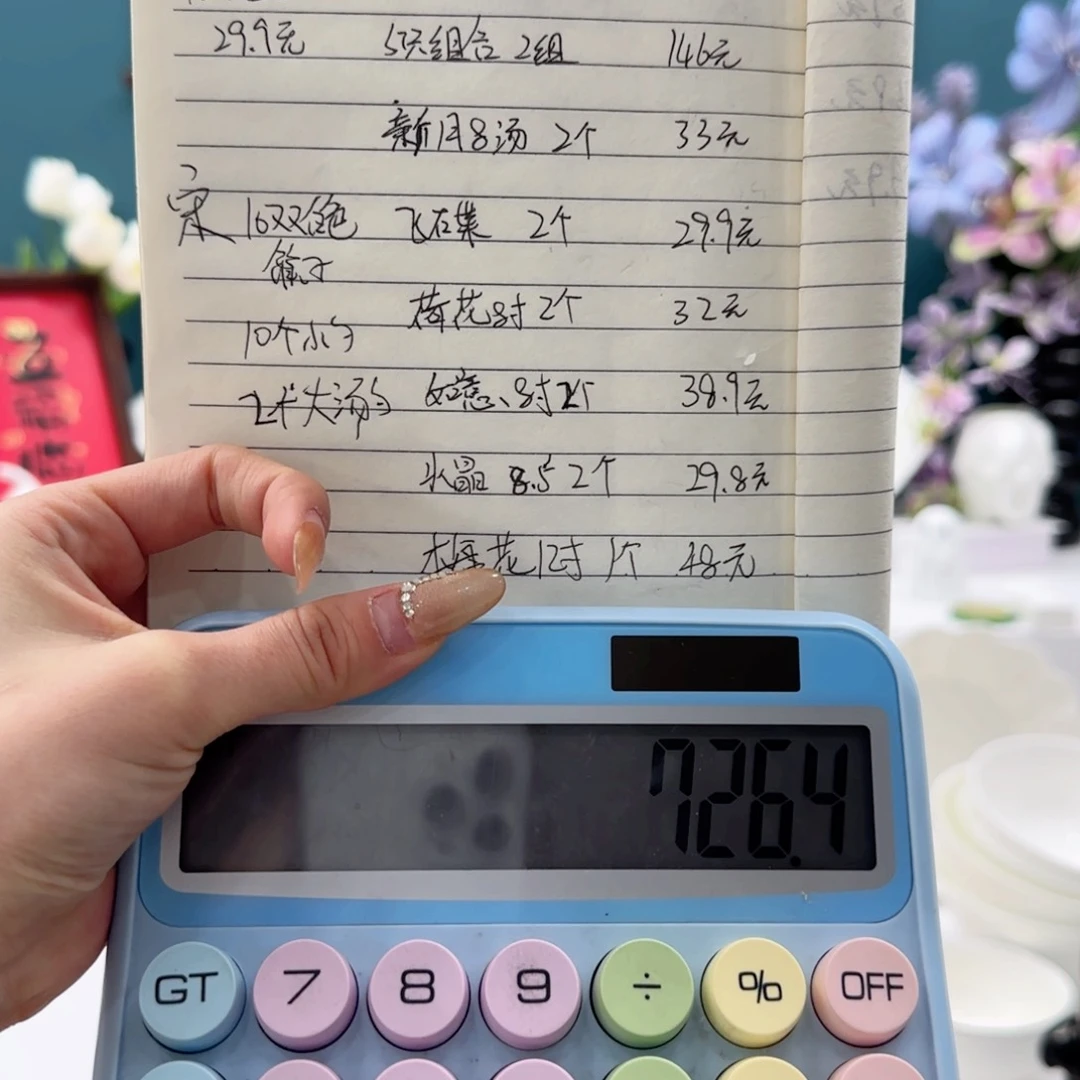 29.9元 5只组合 2组 146元
新月8汤 2个 33元
宋 16双金色 飞在菜 2个 29.9元
筷子
荷花8寸 2个 32元
10个小勺
2个大汤勺 如意8寸 2个 38.9元
水晶 8.5 2个 29.8元
花12寸 1个 48元
726.4
GT 7 8 9 ÷ % OFF